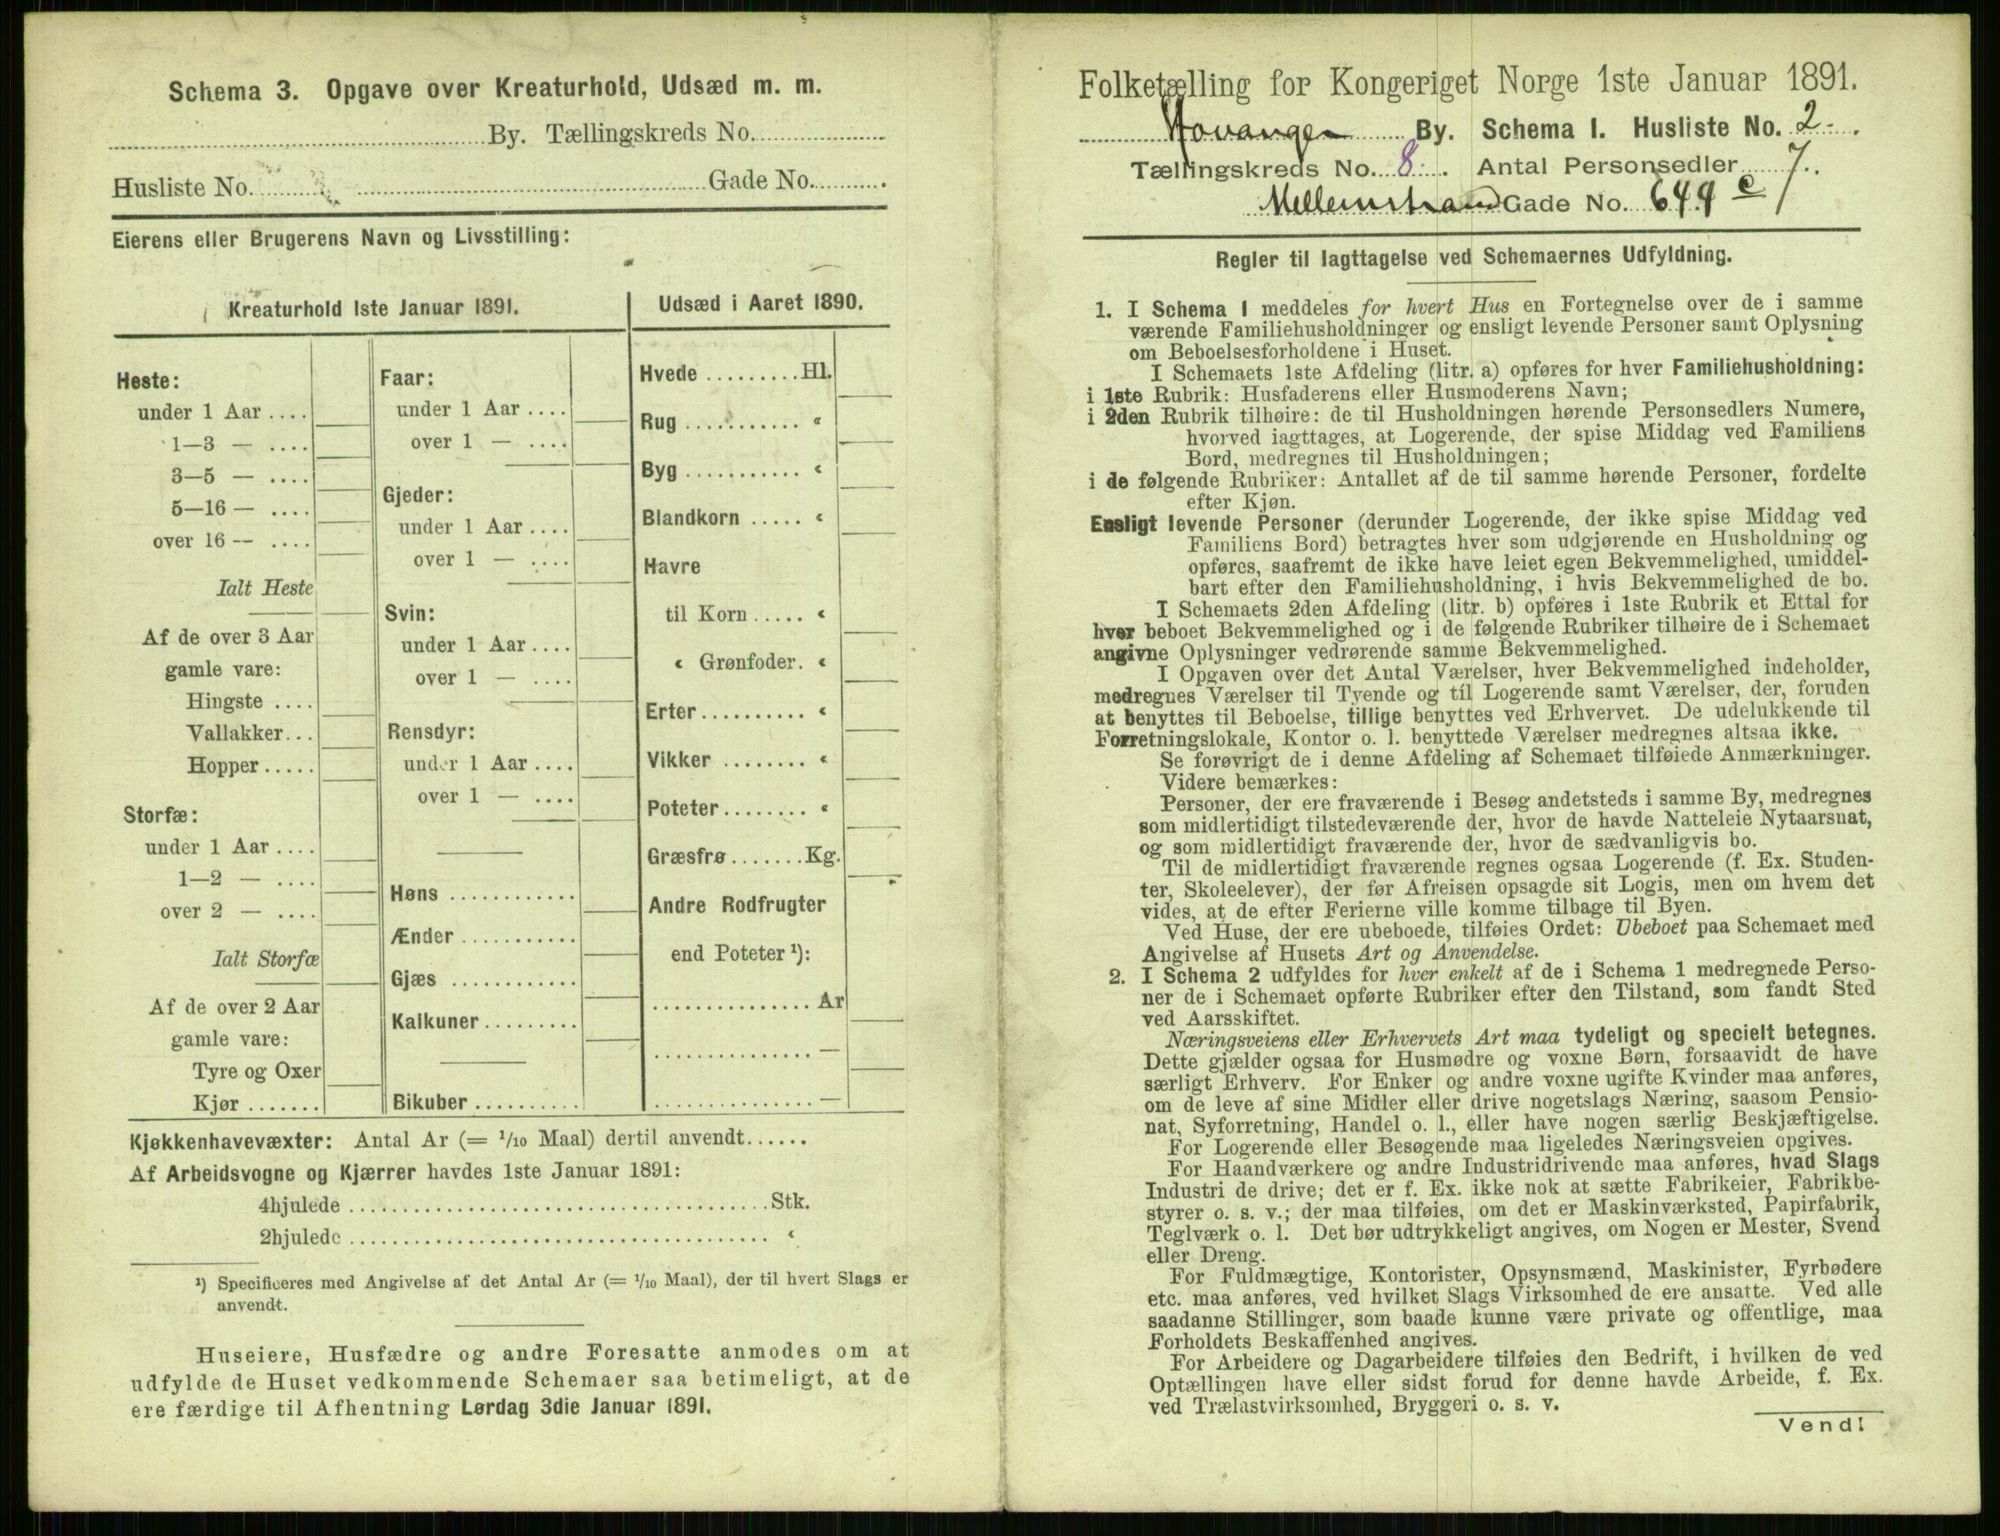 Schema 3. Opgave over Kreaturhold, Udsæd m. m.
By. Tællingskreds No.
Husliste No. Gade No.
Eierens eller Brugerens Navn og Livsstilling:
Kreaturhold 1ste Januar 1891.
Heste:
under 1 Aar
1—3 —
3—5 —
5—16 —
over 16 —
Ialt Heste
Af de over 3 Aar
gamle vare:
Hingste
Vallakker
Hopper
Storfæ:
under 1 Aar
1—2 —
over 2 —
Ialt Storfæ
Af de over 2 Aar
gamle vare:
Tyre og Oxer
Kjør
Faar:
under 1 Aar
over 1 —
Gjeder:
under 1 Aar
over 1 —
Svin:
under 1 Aar
over 1 —
Rensdyr:
under 1 Aar
over 1 —
Høns
Ænder
Gjæs
Kalkuner
Bikuber
Udsæd i Aaret 1890.
Hvede Hl.
Rug «
Byg «
Blandkorn «
Havre
til Korn «
« Grønfoder. «
Erter «
Vikker «
Poteter «
Græsfrø Kg.
Andre Rodfrugter
end Poteter ¹):
Ar
—
—
Kjøkkenhavevæxter: Antal Ar (= 1/10 Maal) dertil anvendt
Af Arbeidsvogne og Kjærrer havdes 1ste Januar 1891:
4hjulede Stk.
2hjulede «
¹) Specificeres med Angivelse af det Antal Ar (= 1/10 Maal), der til hvert Slags er
anvendt.
Huseiere, Husfædre og andre Foresatte anmodes om at
udfylde de Huset vedkommende Schemaer saa betimeligt, at de
ere færdige til Afhentning Lørdag 3die Januar 1891.
Folketælling for Kongeriget Norge 1ste Januar 1891.
Stavanger By. Schema I. Husliste No. 2
Tællingskreds No. 8. Antal Personsedler 7.
Mellemstrand Gade No. 644 c
Regler til Iagttagelse ved Schemaernes Udfyldning.
1. I Schema 1 meddeles for hvert Hus en Fortegnelse over de i samme
værende Familiehusholdninger og ensligt levende Personer samt Oplysning
om Beboelsesforholdene i Huset.
I Schemaets 1ste Afdeling (litr. a) opføres for hver Familiehusholdning:
i 1ste Rubrik: Husfaderens eller Husmoderens Navn;
i 2den Rubrik tilhøire: de til Husholdningen hørende Personsedlers Numere,
hvorved iagttages, at Logerende, der spise Middag ved Familiens
Bord, medregnes til Husholdningen;
i de følgende Rubriker: Antallet af de til samme hørende Personer, fordelte
efter Kjøn.
Ensligt levende Personer (derunder Logerende, der ikke spise Middag ved
Familiens Bord) betragtes hver som udgjørende en Husholdning og
opføres, saafremt de ikke have leiet egen Bekvemmelighed, umiddel-
bart efter den Familiehusholdning, i hvis Bekvemmelighed de bo.
I Schemaets 2den Afdeling (litr. b) opføres i 1ste Rubrik et Ettal for
hver beboet Bekvemmelighed og i de følgende Rubriker tilhøire de i Schemaet
angivne Oplysninger vedrørende samme Bekvemmelighed.
I Opgaven over det Antal Værelser, hver Bekvemmelighed indeholder,
medregnes Værelser til Tyende og til Logerende samt Værelser, der, foruden
at benyttes til Beboelse, tillige benyttes ved Erhvervet. De udelukkende til
Forretningslokale, Kontor o. l. benyttede Værelser medregnes altsaa ikke.
Se forøvrigt de i denne Afdeling af Schemaet tilføiede Anmærkninger.
Videre bemærkes:
Personer, der ere fraværende i Besøg andetsteds i samme By, medregnes
som midlertidigt tilstedeværende der, hvor de havde Natteleie Nytaarsnat,
og som midlertidigt fraværende der, hvor de sædvanligvis bo.
Til de midlertidigt fraværende regnes ogsaa Logerende (f. Ex. Studen-
ter, Skoleelever), der før Afreisen opsagde sit Logis, men om hvem det
vides, at de efter Ferierne ville komme tilbage til Byen.
Ved Huse, der ere ubeboede, tilføies Ordet: Ubeboet paa Schemaet med
Angivelse af Husets Art og Anvendelse.
2. I Schema 2 udfyldes for hver enkelt af de i Schema 1 medregnede Perso-
ner de i Schemaet opførte Rubriker efter den Tilstand, som fandt Sted
ved Aarsskiftet.
Næringsveiens eller Erhvervets Art maa tydeligt og specielt betegnes.
Dette gjælder ogsaa for Husmødre og voxne Børn, forsaavidt de have
særligt Erhverv. For Enker og andre voxne ugifte Kvinder maa anføres,
om de leve af sine Midler eller drive nogetslags Næring, saasom Pensio-
nat, Syforretning, Handel o. l., eller have nogen særlig Beskjæftigelse.
For Logerende eller Besøgende maa ligeledes Næringsveien opgives.
For Haandværkere og andre Industridrivende maa anføres, hvad Slags
Industri de drive; det er f. Ex. ikke nok at sætte Fabrikeier, Fabrikbe-
styrer o. s. v.; der maa tilføies, om det er Maskinværksted, Papirfabrik,
Teglværk o. l. Det bør udtrykkeligt angives, om Nogen er Mester, Svend
eller Dreng.
For Fuldmægtige, Kontorister, Opsynsmænd, Maskinister, Fyrbødere
etc. maa anføres, ved hvilket Slags Virksomhed de ere ansatte. Ved alle
saadanne Stillinger, som baade kunne være private og offentlige, maa
Forholdets Beskaffenhed angives.
For Arbeidere og Dagarbeidere tilføies den Bedrift, i hvilken de ved
Optællingen have eller sidst forud for denne havde Arbeide, f. Ex.
ved Trælastvirksomhed, Bryggeri o. s. v.
Vend!